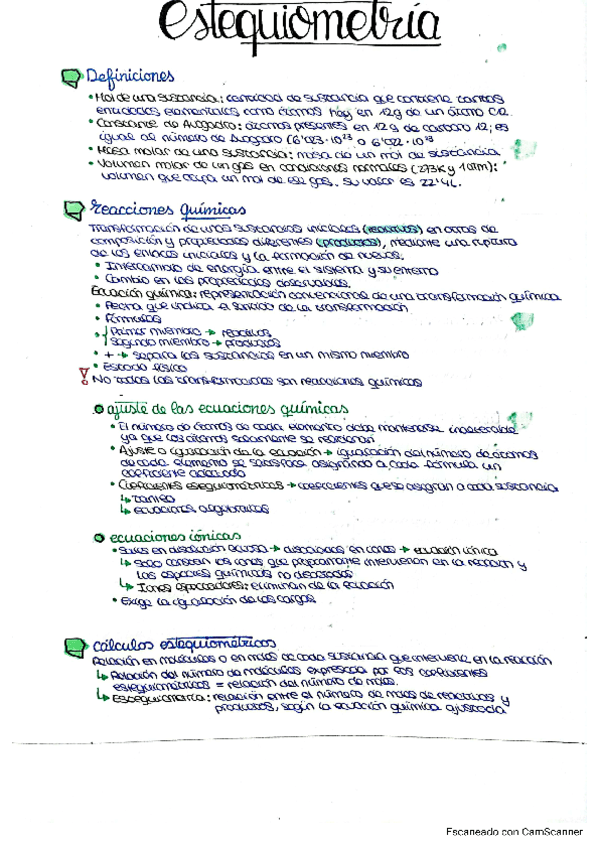 Estequiometría
Definiciones
• Mol de una sustancia: cantidad de sustancia que contiene tantas
entidades elementales como átomos hay en 12g de un átomo C12.
• Constante de Avogadro: átomos presentes en 12g de carbono 12; es
igual al número de Avogadro (6'023·10²³ o 6'022·10²³
• Masa molar de una sustancia: masa de un mol de sustancia
• Volumen molar de un gas en condiciones normales (273K y 1atm):
volumen que ocupa un mol de ese gas. Su valor es 22'4L.
Reacciones químicas
Transformación de unas sustancias iniciales (reactivos) en otras de
composición y propiedades diferentes (productos), mediante una ruptura
de los enlaces iniciales y la formación de nuevos.
• Intercambio de energía entre el sistema y su entorno
• Cambio en las propiedades observables.
Ecuación química: representación convenciones de una transformación química
• Flecha que indica el sentido de la transformación
• Fórmulas
• Primer miembro → reactivos
Segundo miembro → productos
• + → separa las sustancias en un mismo miembro
• Estado físico
! No todas las transformaciones son reacciones químicas
ajuste de las ecuaciones químicas
• El número de átomos de cada elemento debe mantenerse inalterable
ya que los átomos solamente se reaccionan
• Ajuste o igualación de la ecuación → igualación del número de átomos
de cada elemento se satisface asignando a cada fórmula un
coeficiente adecuado
• Coeficientes estequiométricos → coeficientes que se asignan a cada sustancia
↳ tanteo
↳ ecuaciones algebraicas
ecuaciones iónicas
• Sales en disolución acuosa → disociadas en iones → ecuación iónica
↳ Solo constan los iones que propiamente intervienen en la reacción y
las especies químicas no disociadas
↳ Iones espectadores: eliminan de la ecuación
• Exige la igualación de las cargas
Cálculos estequiométricos
Relación en moléculas o en moles de cada sustancia que interviene en la reacción
↳ Relación del número de moléculas expresada por los coeficientes
estequiométricos = relación del número de moles.
↳ Estequiometría: relación entre el número de moles de reactivos y
productos, según la ecuación química ajustada
Escaneado con CamScanner